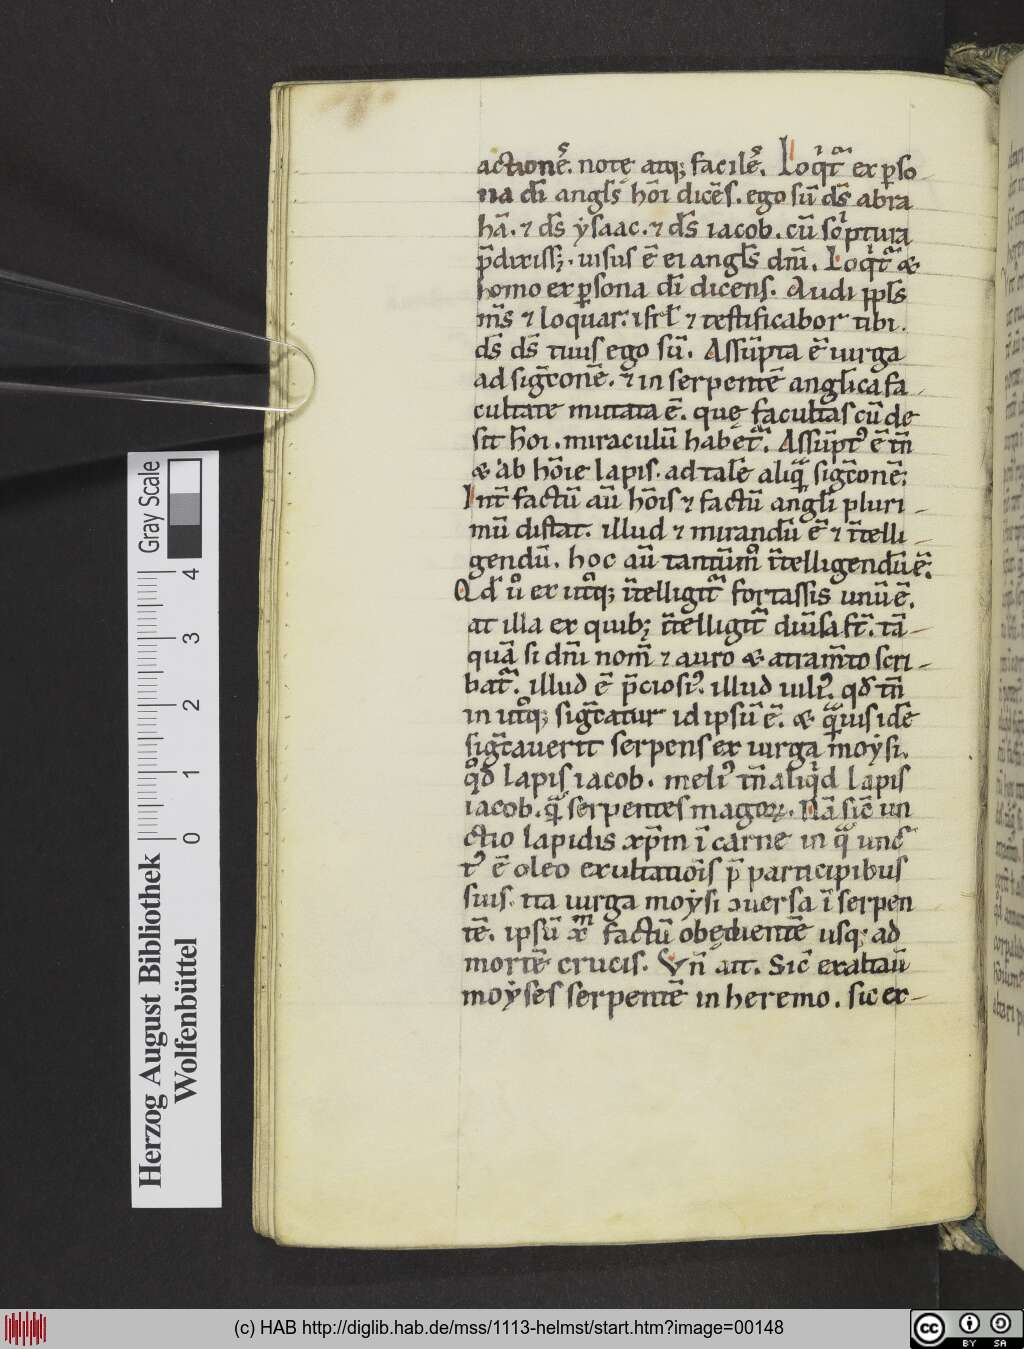 actionē. notę atq; facilē. Loq̇t̄ ex ꝑso
na dī angl̄s hōi dicēs. ego sū ds̄ abra
hā. ⁊ ds̄ ẏsaac. ⁊ ds̄ iacob. cū sc̓ptura
p̄dixiss;. uisus ē ei angl̄s dn̄i. Loq̇t̄ &
homo ex ꝑsona dī dicens. Audi ppl̄s
m̄s ⁊ loquar. isrl̄ ⁊ testificabor tibi.
ds̄ ds̄ tuus ego sū. Assūpta ē uirga
ad siḡconē. ⁊ in serpentē angl̄ica fa
cultate mutata ē. que facultas cū de
sit h̄oi. miraculū habet̄. Assūptꝰ ē tn̄
& ab hōie lapis. ad talē aliq̄ siḡconē;
Int̄ factū aū hōis ⁊ factū angl̄i pluri
mū distat. illud ⁊ mirandū ē ⁊ īt̄elli
gendū. hoc aū tantūmͦ īt̄elligendū ē;
Qd̄ uͦ ex utͦq; īt̄elligit̄ fortassis unū ē.
at illa ex quib; īt̄elligit̄ diūsa st̄. tā
quā si dn̄i nom̄ ⁊ auro & atram̄to scri
bat̄. illud ē p̄ciosiꝰ. illud uiliꝰ. qd̄ tn̄
in utͦq; siḡcatur id ipsū ē. & q̄uis idē
siḡcauerit serpens ex uirga moẏsi.
qͦd lapis iacob. meliꝰ tn̄ aliq̇d lapis
iacob. q̄ serpentes magoꝝ. Nā sic̄ un
ctio lapidis xp̄m ī carne in q̄ unc̄
tꝰ ē oleo exultatiōis p̄ participibus
suis. ita uirga moẏsi ↄuersa ī serpen
tē. ipsū xm̄ factū obedientē usq; ad
mortē crucis. Vn̄ ait. Sic̄ exaltaū
moẏses serpentē in heremo. sic ex
Gray Scale
0 1 2 3 4
Herzog August Bibliothek
Wolfenbüttel
(c) HAB http://diglib.hab.de/mss/1113-helmst/start.htm?image=00148
cc BY SA